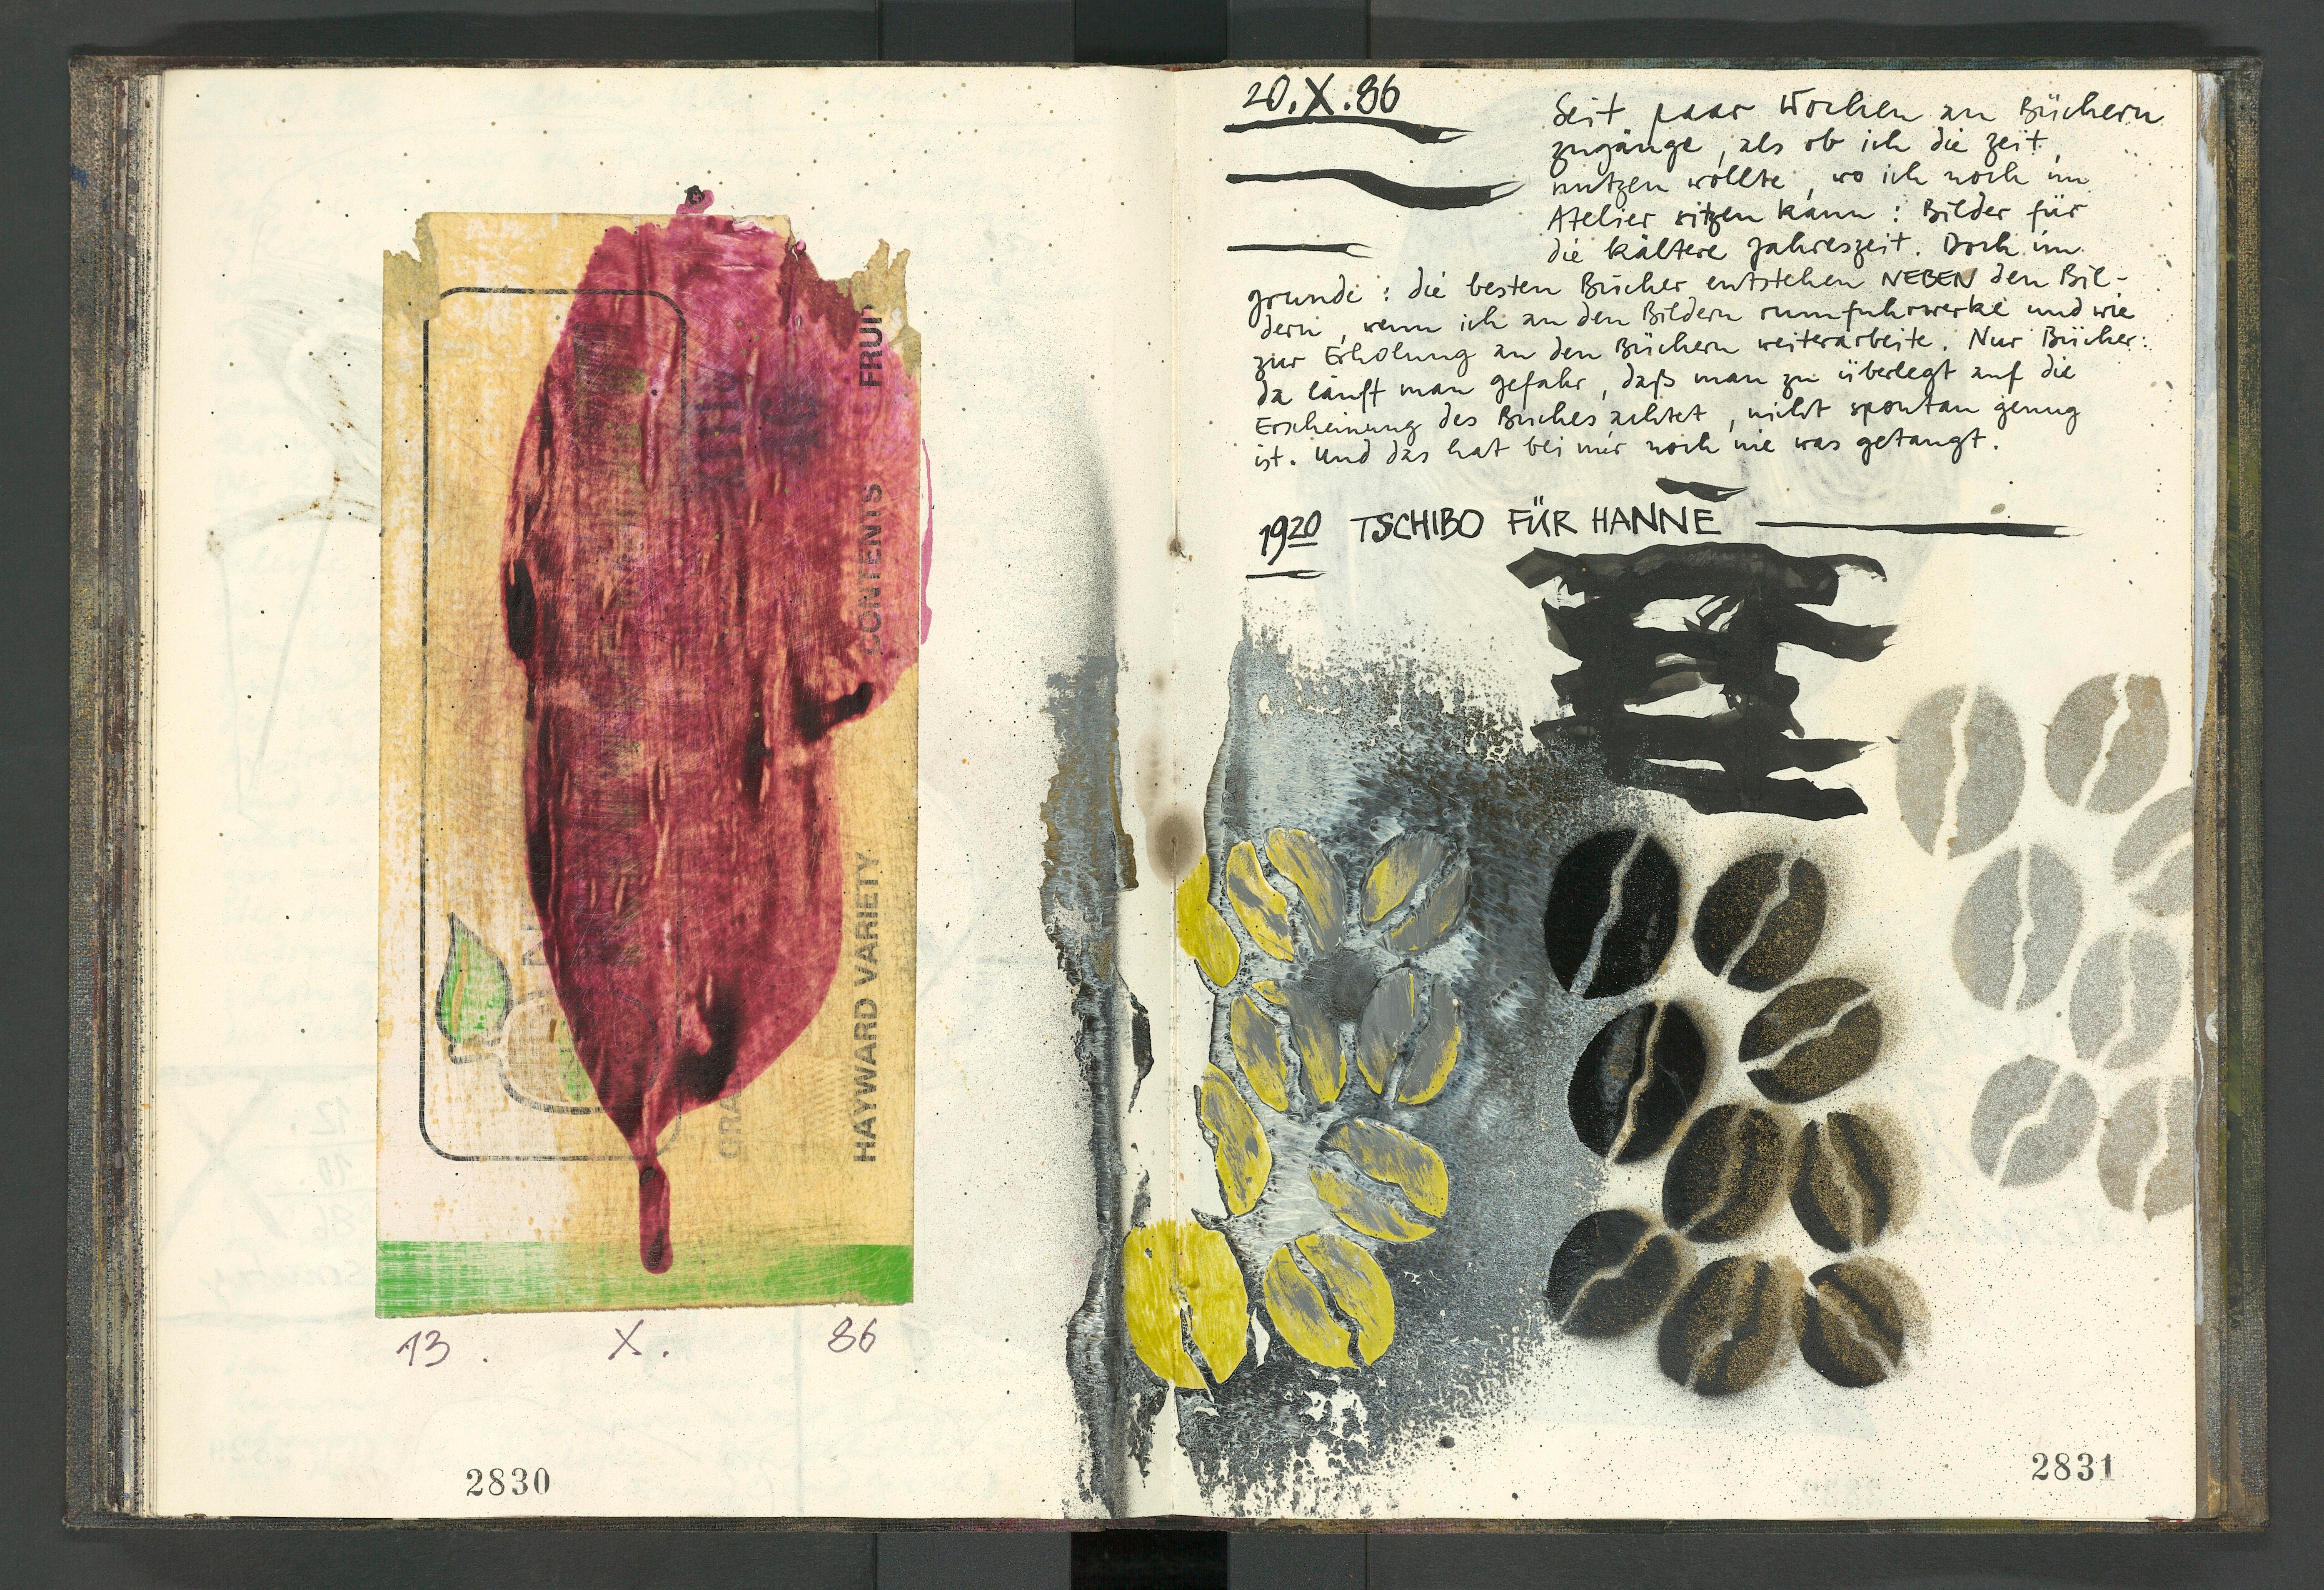 FRUI
CONTENTS
HAYWARD VARIETY
GRA
13. X. 86
2830
20.X.86
Seit paar Wochen an Büchern
zugänge, als ob ich die zeit
nutzen wollte, wo ich noch im
Atelier sitzen kann: Bilder für
die kältere Jahreszeit. Doch im
grunde: die besten Bücher entstehen NEBEN den Bil-
dern, wenn ich an den Bildern rumfuhrwerke und wie
zur Erholung an den Büchern weiterarbeite. Nur Bücher:
da läuft man gefahr, daß man zu überlegt auf die
Erscheinung des Buches achtet, nicht spontan genug
ist. Und das hat bei mir noch nie was getaugt.
1920 TSCHIBO FÜR HANNE
2831